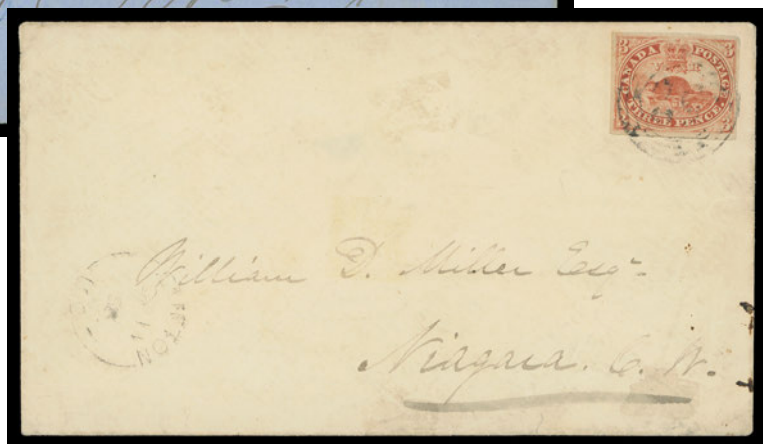 3 CANADA POSTAGE 3
THREE PENCE
William D. Miller Esqr.
Niagara. C. W.